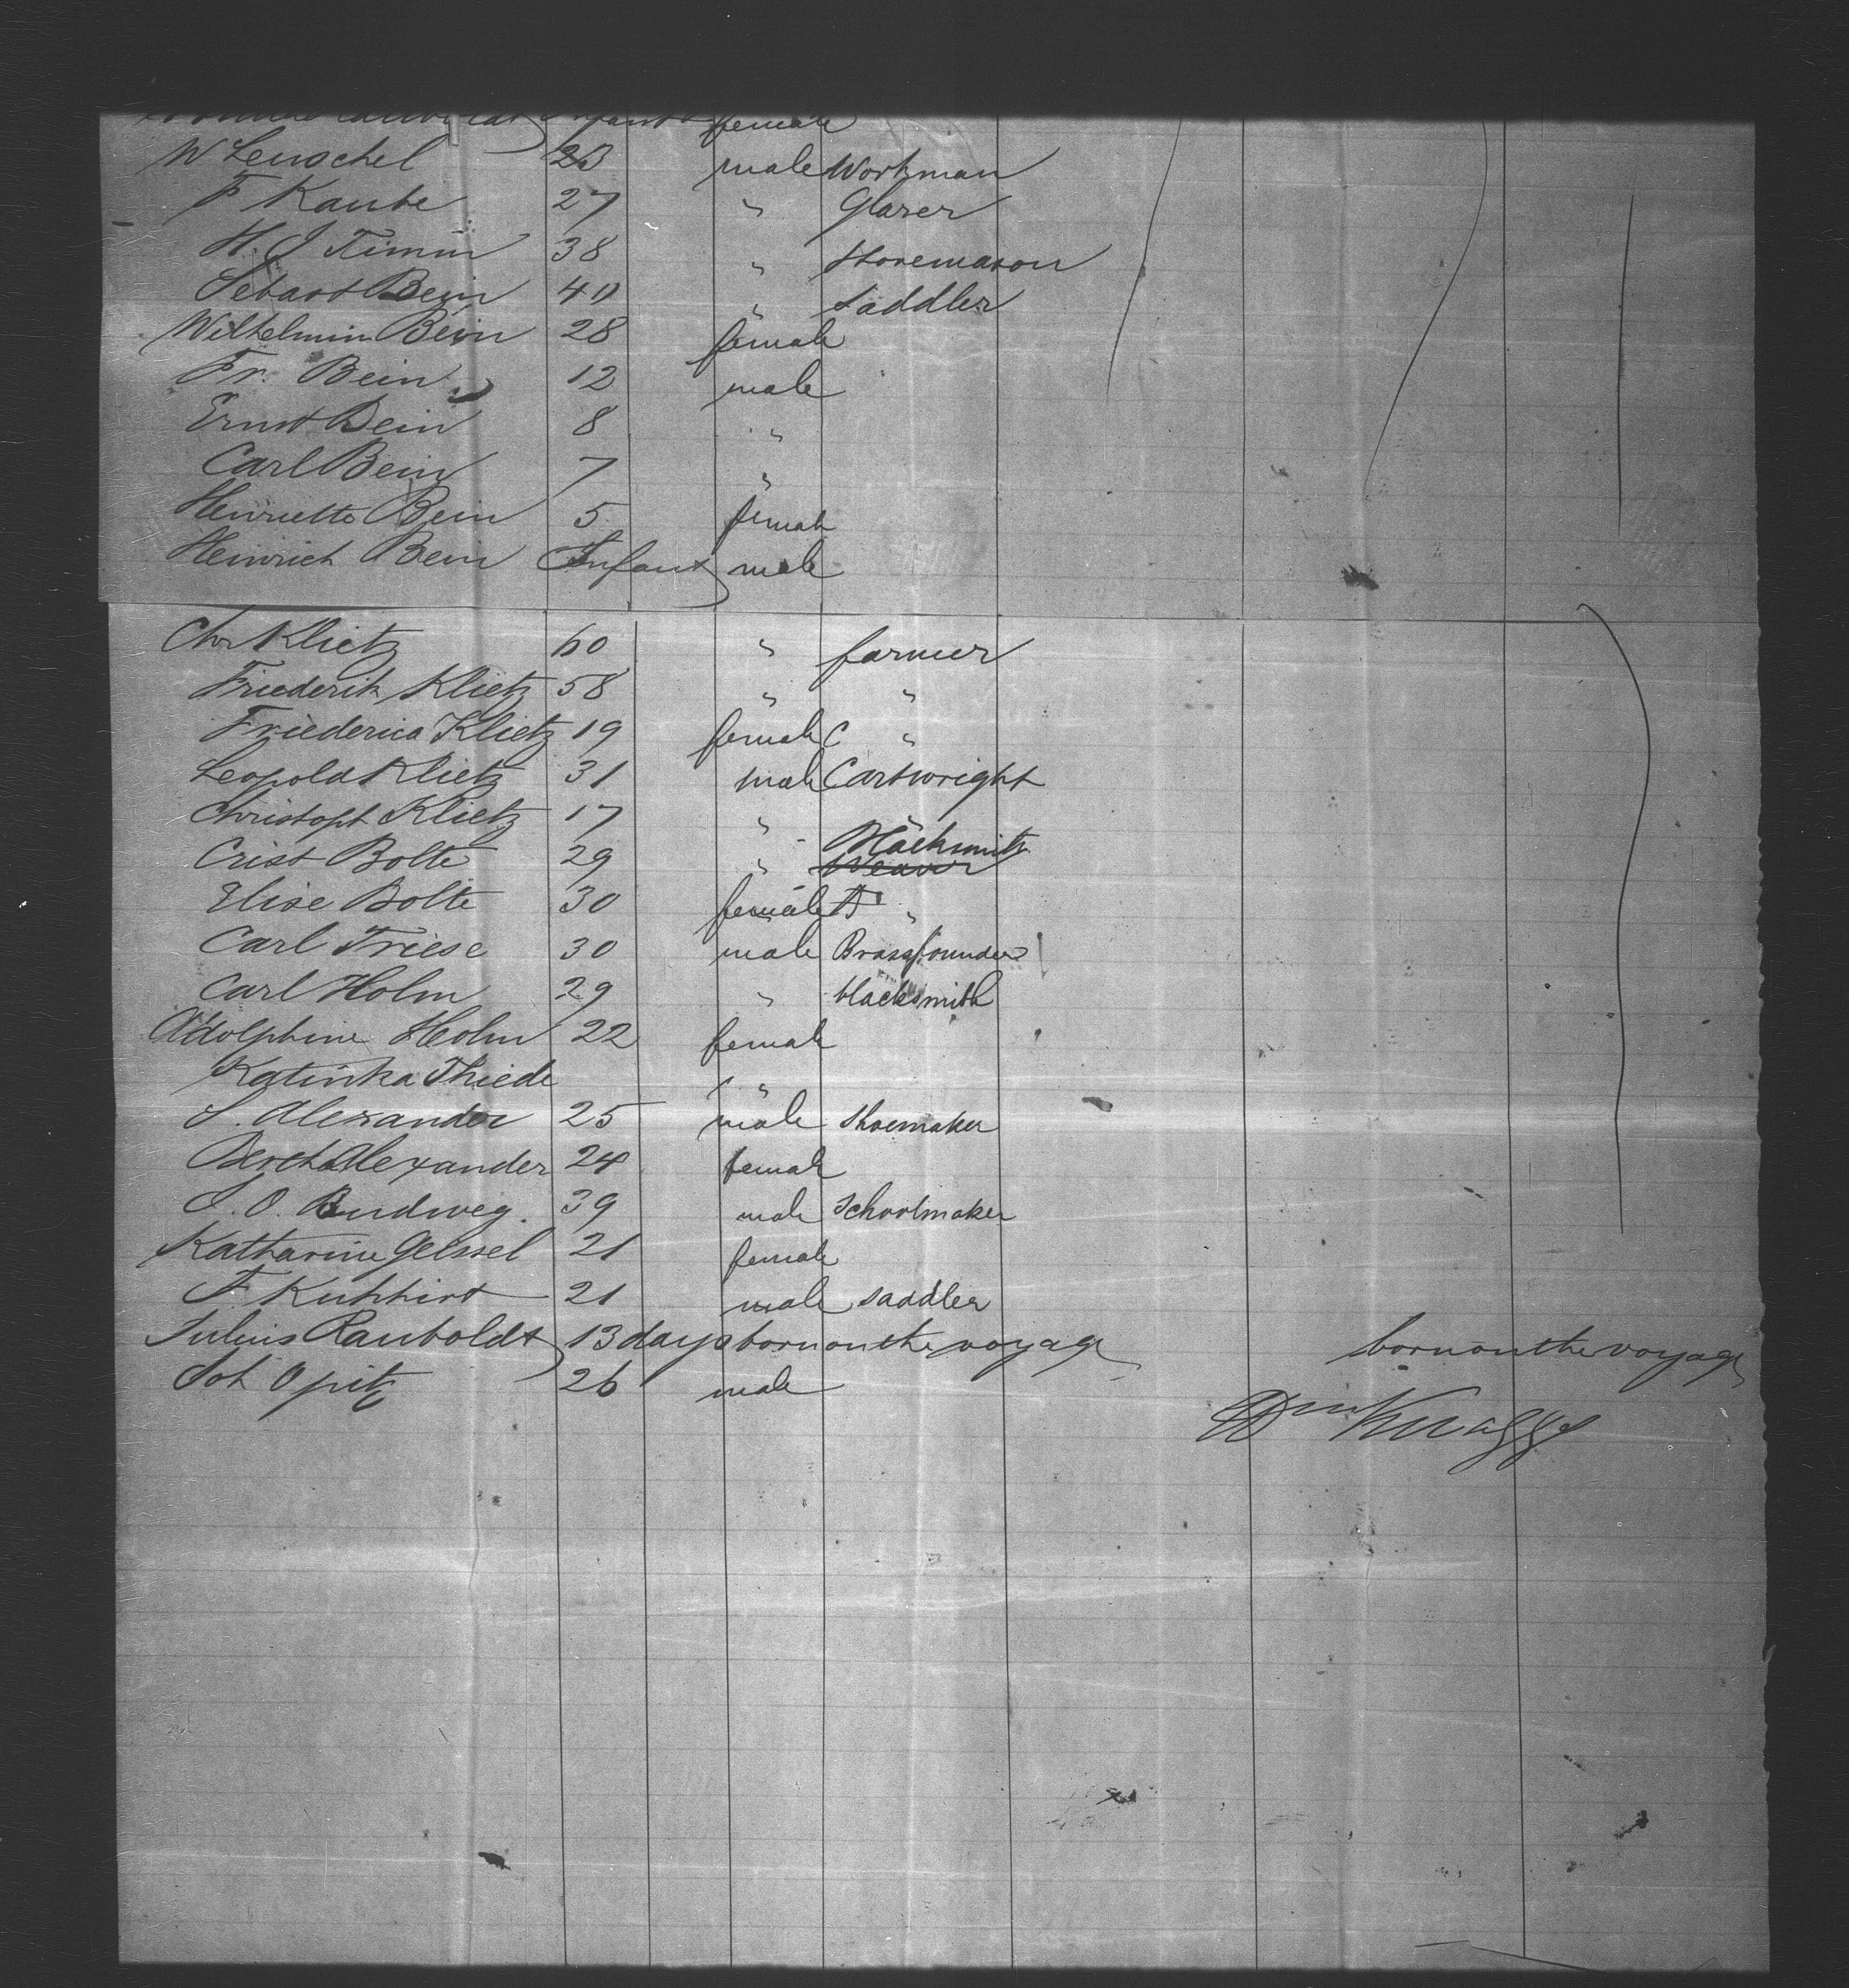 Infant female
W Leuschel 23 male Workman
F Kaube 27 " Glaser
H. J Timm 38 " Stonemason
Sebast Bein 40 " Saddler
Wilhelmin Bein 28 female
Fr. Bein 12 male
Ernst Bein 8 "
Carl Bein 7 "
Henriette Bein 5 female
Heinrich Bein Infant male
Chr Klietz 60 " farmer
Friederik Klietz 58 " "
Friederica Klietz 19 female "
Leopold Klietz 31 male Cartwright
Christoph Klietz 17 "
Crist Bolte 29 " Blacksmith
Weaver
Elise Bolte 30 female "
Carl Friese 30 male Brassfounder
Carl Holm 29 " blacksmith
Adolphine Holm 22 female
Katinka Thiede "
S. Alexander 25 male Shoemaker
Berth Alexander 24 female
J. O. Budweg. 39 male Schoolmaker
Katharine Gelssel 21 female
F Kuhhirt 21 male saddler
Julius Rauboldt 13 days born on the voyage born on the voyage
Joh Opitz 26 male
Wm Knaggs